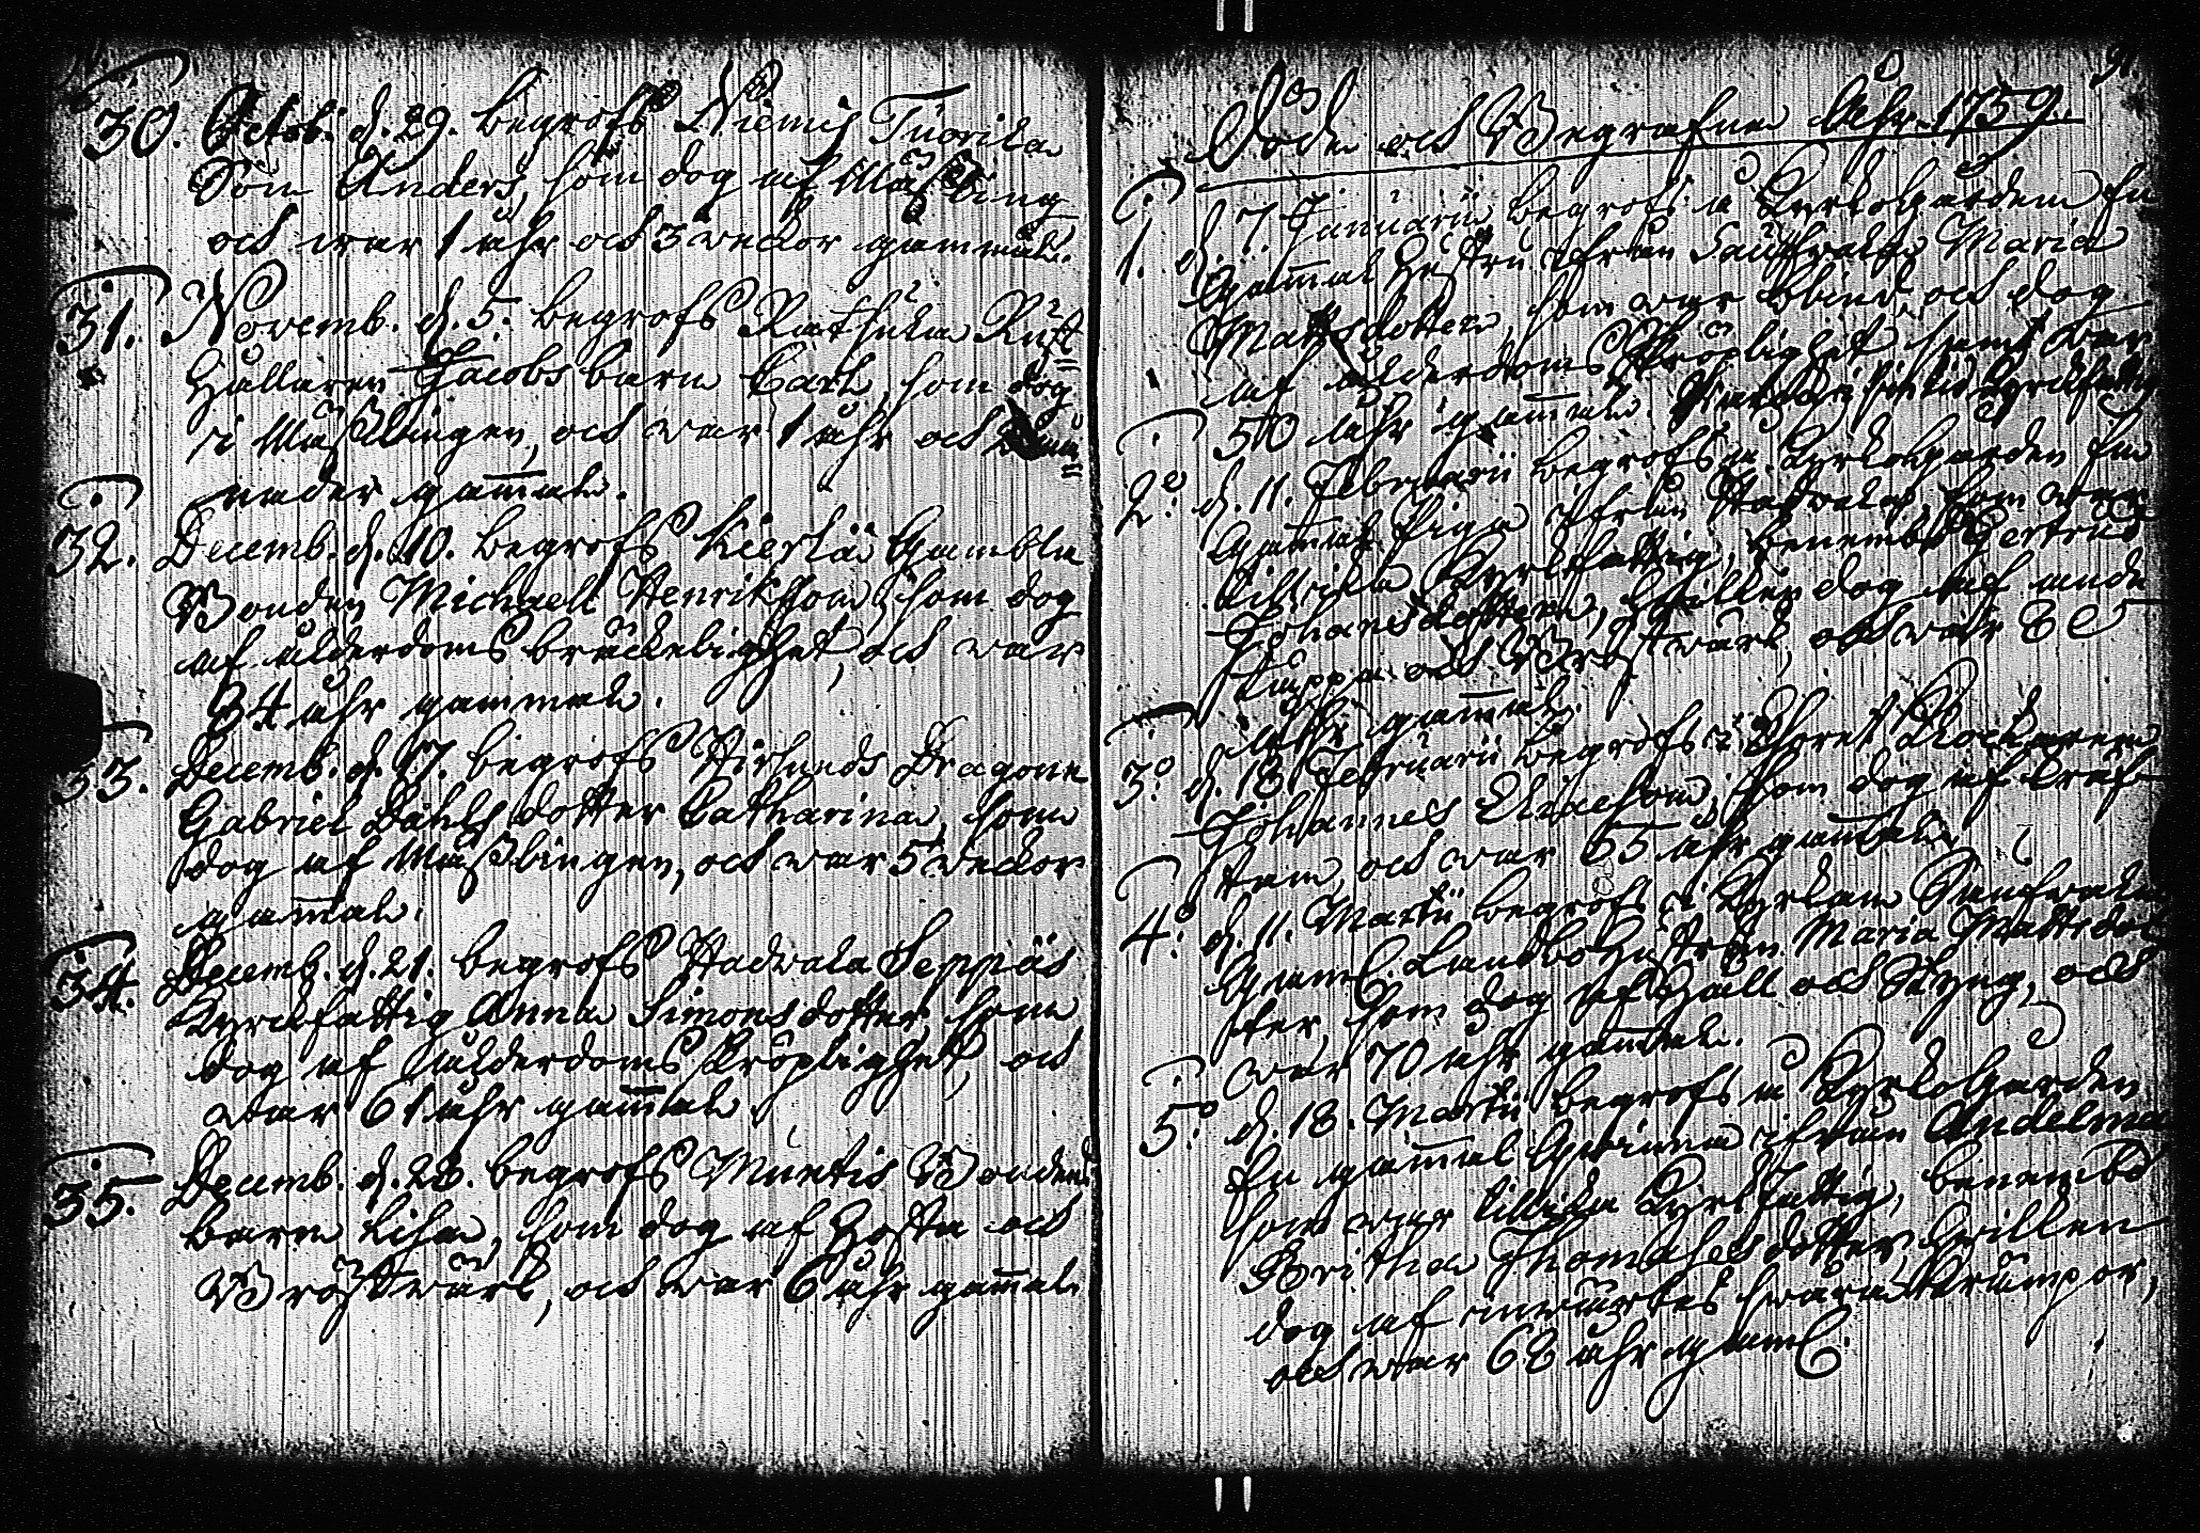 30. Octob. d. 29. begrofs Niemis Tuorila
Son Anders, som dog af Mäßling
och war 1 åhr och 3 weckor gammal.
31. Novemb. d. 5. begrofs Rathula Rust
Hållaren Jacobs barn Carl, som dog
i Mäßlingen, och war 1 åhr och
nader gammal.
32. Decemb. d. 10. begrofs Kierlä Gambla
Bonden Michaell Henriksson, som dog
af ålderdoms bräckelighet, och war
84 åhr gammal.
33. Decemb. d. 17. begrofs Dragone
Gabriel Dahls dotter Catharina, som
dog af Mäßlingen, och war 5 weckor
gammal.
34. Decemb. d. 21. begrofs Stadwala Seppäs
Kyrckfattig Anna Simonsdotter, som
dog af ålderdoms kröplighet, och
war 61 åhr gammal.
35. Decemb. d. 28. begrofs Muntis Bondens
barn Lisa, som dog af Hosta och
Bröstwärk, och war 6 åhr gammal
Döde och Begrafne Åhr 1759.
1. d. 7. Januarii begrofs å Kyrkogården En
Gammal Hustru ifrån Maria
Mattsdotter, som war Blind, och dog
af ålderdoms Kröplighet samt war
50 åhr gammal.
2. d. 11. Februarii begrofs å Kyrkogården En
Gammal Piga ifrån Stadwala, som war
tillika Kyrkfattig, benembd Gertrud
Johansdotter, hwilken dog af ande
täppa och Bröstwärk, och war
åhr gammal.
3. d. 18. Februarii begrofs i Choret Klockaren
Johannes som dog af Kräf
tan, och war 65 åhr gammal.
4. d. 11. Martii begrofs i Kyrkan
Gaml. Landbo Hustrun Maria Mattsdot
ter, som dog af Håll och Styng, och
war 70 åhr gammal.
5. d. 18. Martii begrofs å Kyrkogården
En gammal Qwinna ifrån Andelma
som war tillika Kyrkfattig, benembd
Britha Thomasdotter, hwilken
dog af inwärtes swåra Krämpor,
och war 68 åhr gaml.